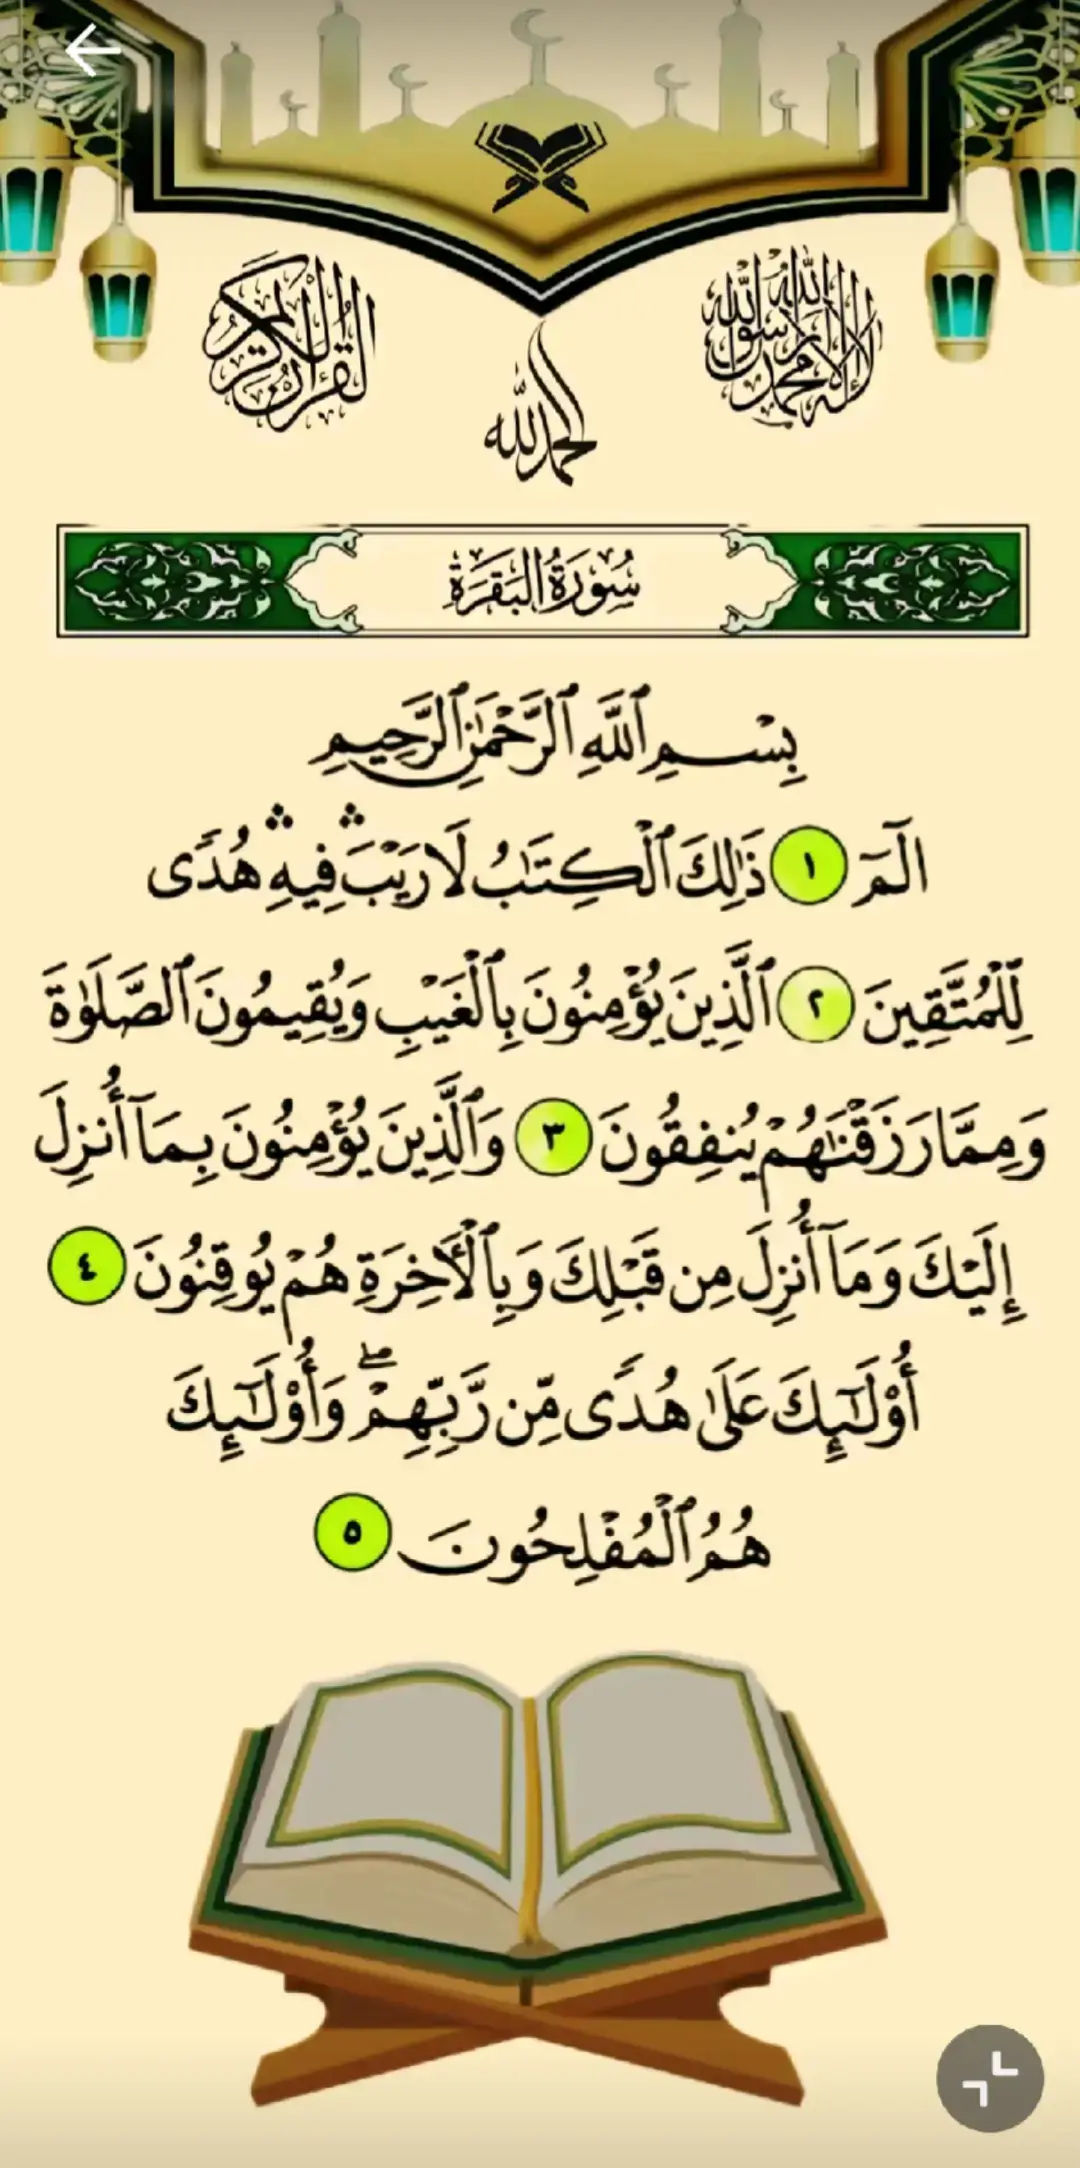 القرآن الكريم
لا إله إلا الله محمد رسول الله
الحمد لله
سُورَةُ الْبَقَرَةِ
بِسْمِ ٱللَّهِ ٱلرَّحْمَٰنِ ٱلرَّحِيمِ
الٓمٓ ١ ذَٰلِكَ ٱلْكِتَٰبُ لَا رَيْبَ ۛ فِيهِ ۛ هُدًى
لِّلْمُتَّقِينَ ٢ ٱلَّذِينَ يُؤْمِنُونَ بِٱلْغَيْبِ وَيُقِيمُونَ ٱلصَّلَوٰةَ
وَمِمَّا رَزَقْنَٰهُمْ يُنفِقُونَ ٣ وَٱلَّذِينَ يُؤْمِنُونَ بِمَآ أُنزِلَ
إِلَيْكَ وَمَآ أُنزِلَ مِن قَبْلِكَ وَبِٱلْأَخِرَةِ هُمْ يُوقِنُونَ ٤
أُوْلَٰٓئِكَ عَلَىٰ هُدًى مِّن رَّبِّهِمْ ۖ وَأُوْلَٰٓئِكَ
هُمُ ٱلْمُفْلِحُونَ ٥